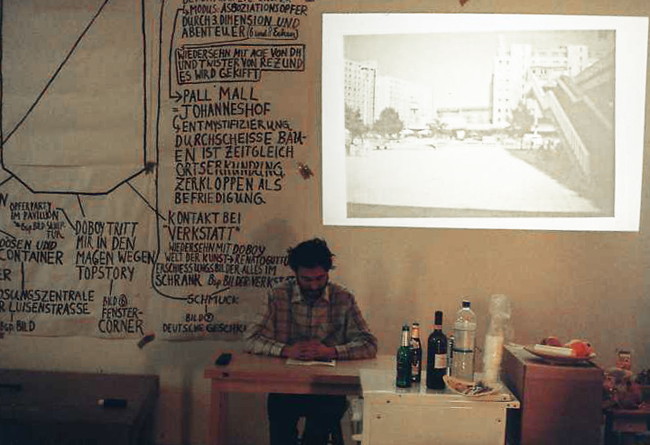 MODUS: ASSOZIATIONSOPFER
DURCH 3 DIMENSION UND
ABENTEUER
WIEDERSEHN MIT ACIE VON DH
UND TWISTER VON REZ UND
ES WIRD GEKIFFT
PALL MALL
= JOHANNESHOF
ENTMYSTIFIZIERUNG
DURCHSCHEISSE BAU-
EN IST ZEITGLEICH
ORTSERKUNDUNG
ZERKLOPPEN ALS
BEFRIEDIGUNG
KONTAKT BEI
"VERKSTATT"
WIEDERSEHN MIT DOBOY
WELT DER KUNST → RENATO GUTTU
ERSCHIESSUNGSBILDER ALLES IM
SCHRANK Bsp. BILDER
SCHMUCK
BILD
DEUTSCHE GESCHI
OPFERPARTY
IM PAVILLON
DOBOY TRITT
MIR IN DEN
MAGEN WEGEN
TOPSTORY
BILD
FENSTER-
CORNER
DOSEN UND
CONTAINER
ER
OSUNGSZENTRALE
R LUISENSTRASSE
Bsp. BILD